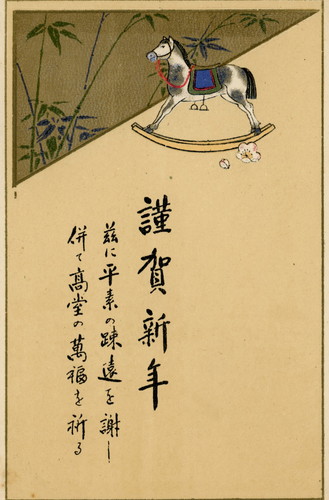 謹賀新年
玆に平素の疎遠を謝し
併て高堂の萬福を祈る